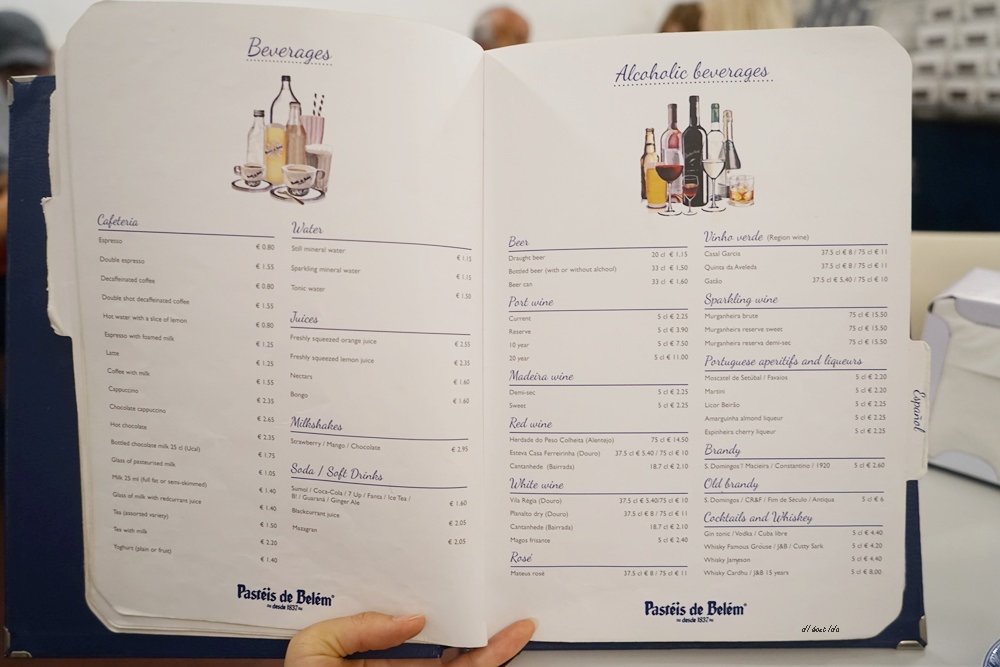 Beverages
Cafeteria
Espresso € 0.80
Double espresso € 1.55
Decaffeinated coffee € 0.80
Double shot decaffeinated coffee € 1.55
Hot water with a slice of lemon € 0.80
Espresso with foamed milk € 1.25
Latte € 1.25
Coffee with milk € 1.55
Cappuccino € 2.35
Chocolate cappuccino € 2.65
Hot chocolate € 2.35
Bottled chocolate milk 25 cl (Ucal) € 1.75
Glass of pasteurised milk € 1.05
Milk 25 ml (full fat or semi-skimmed) € 1.40
Glass of milk with redcurrant juice € 1.40
Tea (assorted variety) € 1.50
Tea with milk € 2.20
Yoghurt (plain or fruit) € 1.40
Water
Still mineral water € 1.15
Sparkling mineral water € 1.15
Tonic water € 1.50
Juices
Freshly squeezed orange juice € 2.55
Freshly squeezed lemon juice € 2.35
Nectars € 1.60
Bongo € 1.60
Milkshakes
Strawberry / Mango / Chocolate € 2.95
Soda / Soft Drinks
Sumol / Coca-Cola / 7 Up / Fanta / Ice Tea /
B! / Guaraná / Ginger Ale € 1.60
Blackcurrant juice € 2.05
Mazagran € 2.05
Pastéis de Belém
desde 1837
Alcoholic beverages
Beer
Draught beer 20 cl € 1,15
Bottled beer (with or without alchool) 33 cl € 1,50
Beer can 33 cl € 1,60
Port wine
Current 5 cl € 2.25
Reserve 5 cl € 3.90
10 year 5 cl € 7.50
20 year 5 cl € 11.00
Madeira wine
Demi-sec 5 cl € 2.25
Sweet 5 cl € 2.25
Red wine
Herdade do Peso Colheita (Alentejo) 75 cl € 14.50
Esteva Casa Ferreirinha (Douro) 37.5 cl € 5,40 / 75 cl € 10
Cantanhede (Bairrada) 18.7 cl € 2.10
White wine
Vila Régia (Douro) 37.5 cl € 5.40/75 cl € 10
Planalto dry (Douro) 37.5 cl € 8 / 75 cl € 11
Cantanhede (Bairrada) 18.7 cl € 2.10
Magos frisante 5 cl € 2.40
Rosé
Mateus rosé 37.5 cl € 8 / 75 cl € 11
Vinho verde (Region wine)
Casal Garcia 37.5 cl € 8 / 75 cl € 11
Quinta da Aveleda 37.5 cl € 8 / 75 cl € 11
Gatão 37.5 cl € 5,40 / 75 cl € 10
Sparkling wine
Murganheira brute 75 cl € 15.50
Murganheira reserve sweet 75 cl € 15.50
Murganheira reserva demi-sec 75 cl € 15.50
Portuguese aperitifs and liqueurs
Moscatel de Setúbal / Favaios 5 cl € 2.20
Martini 5 cl € 2.20
Licor Beirão 5 cl € 2.25
Amarguinha almond liqueur 5 cl € 2.25
Espinheira cherry liqueur 5 cl € 2.25
Brandy
S. Domingos 1 Macieira / Constantino / 1920 5 cl € 2.60
Old brandy
S. Domingos / CR&F / Fim de Século / Antiqua 5 cl € 6
Cocktails and Whiskey
Gin tonic / Vodka / Cuba libre 5 cl € 4.40
Whisky Famous Grouse / J&B / Cutty Sark 5 cl € 4.20
Whisky Jameson 5 cl € 4.40
Whisky Cardhu / J&B 15 years 5 cl € 8.00
Pastéis de Belém
desde 1837
Español